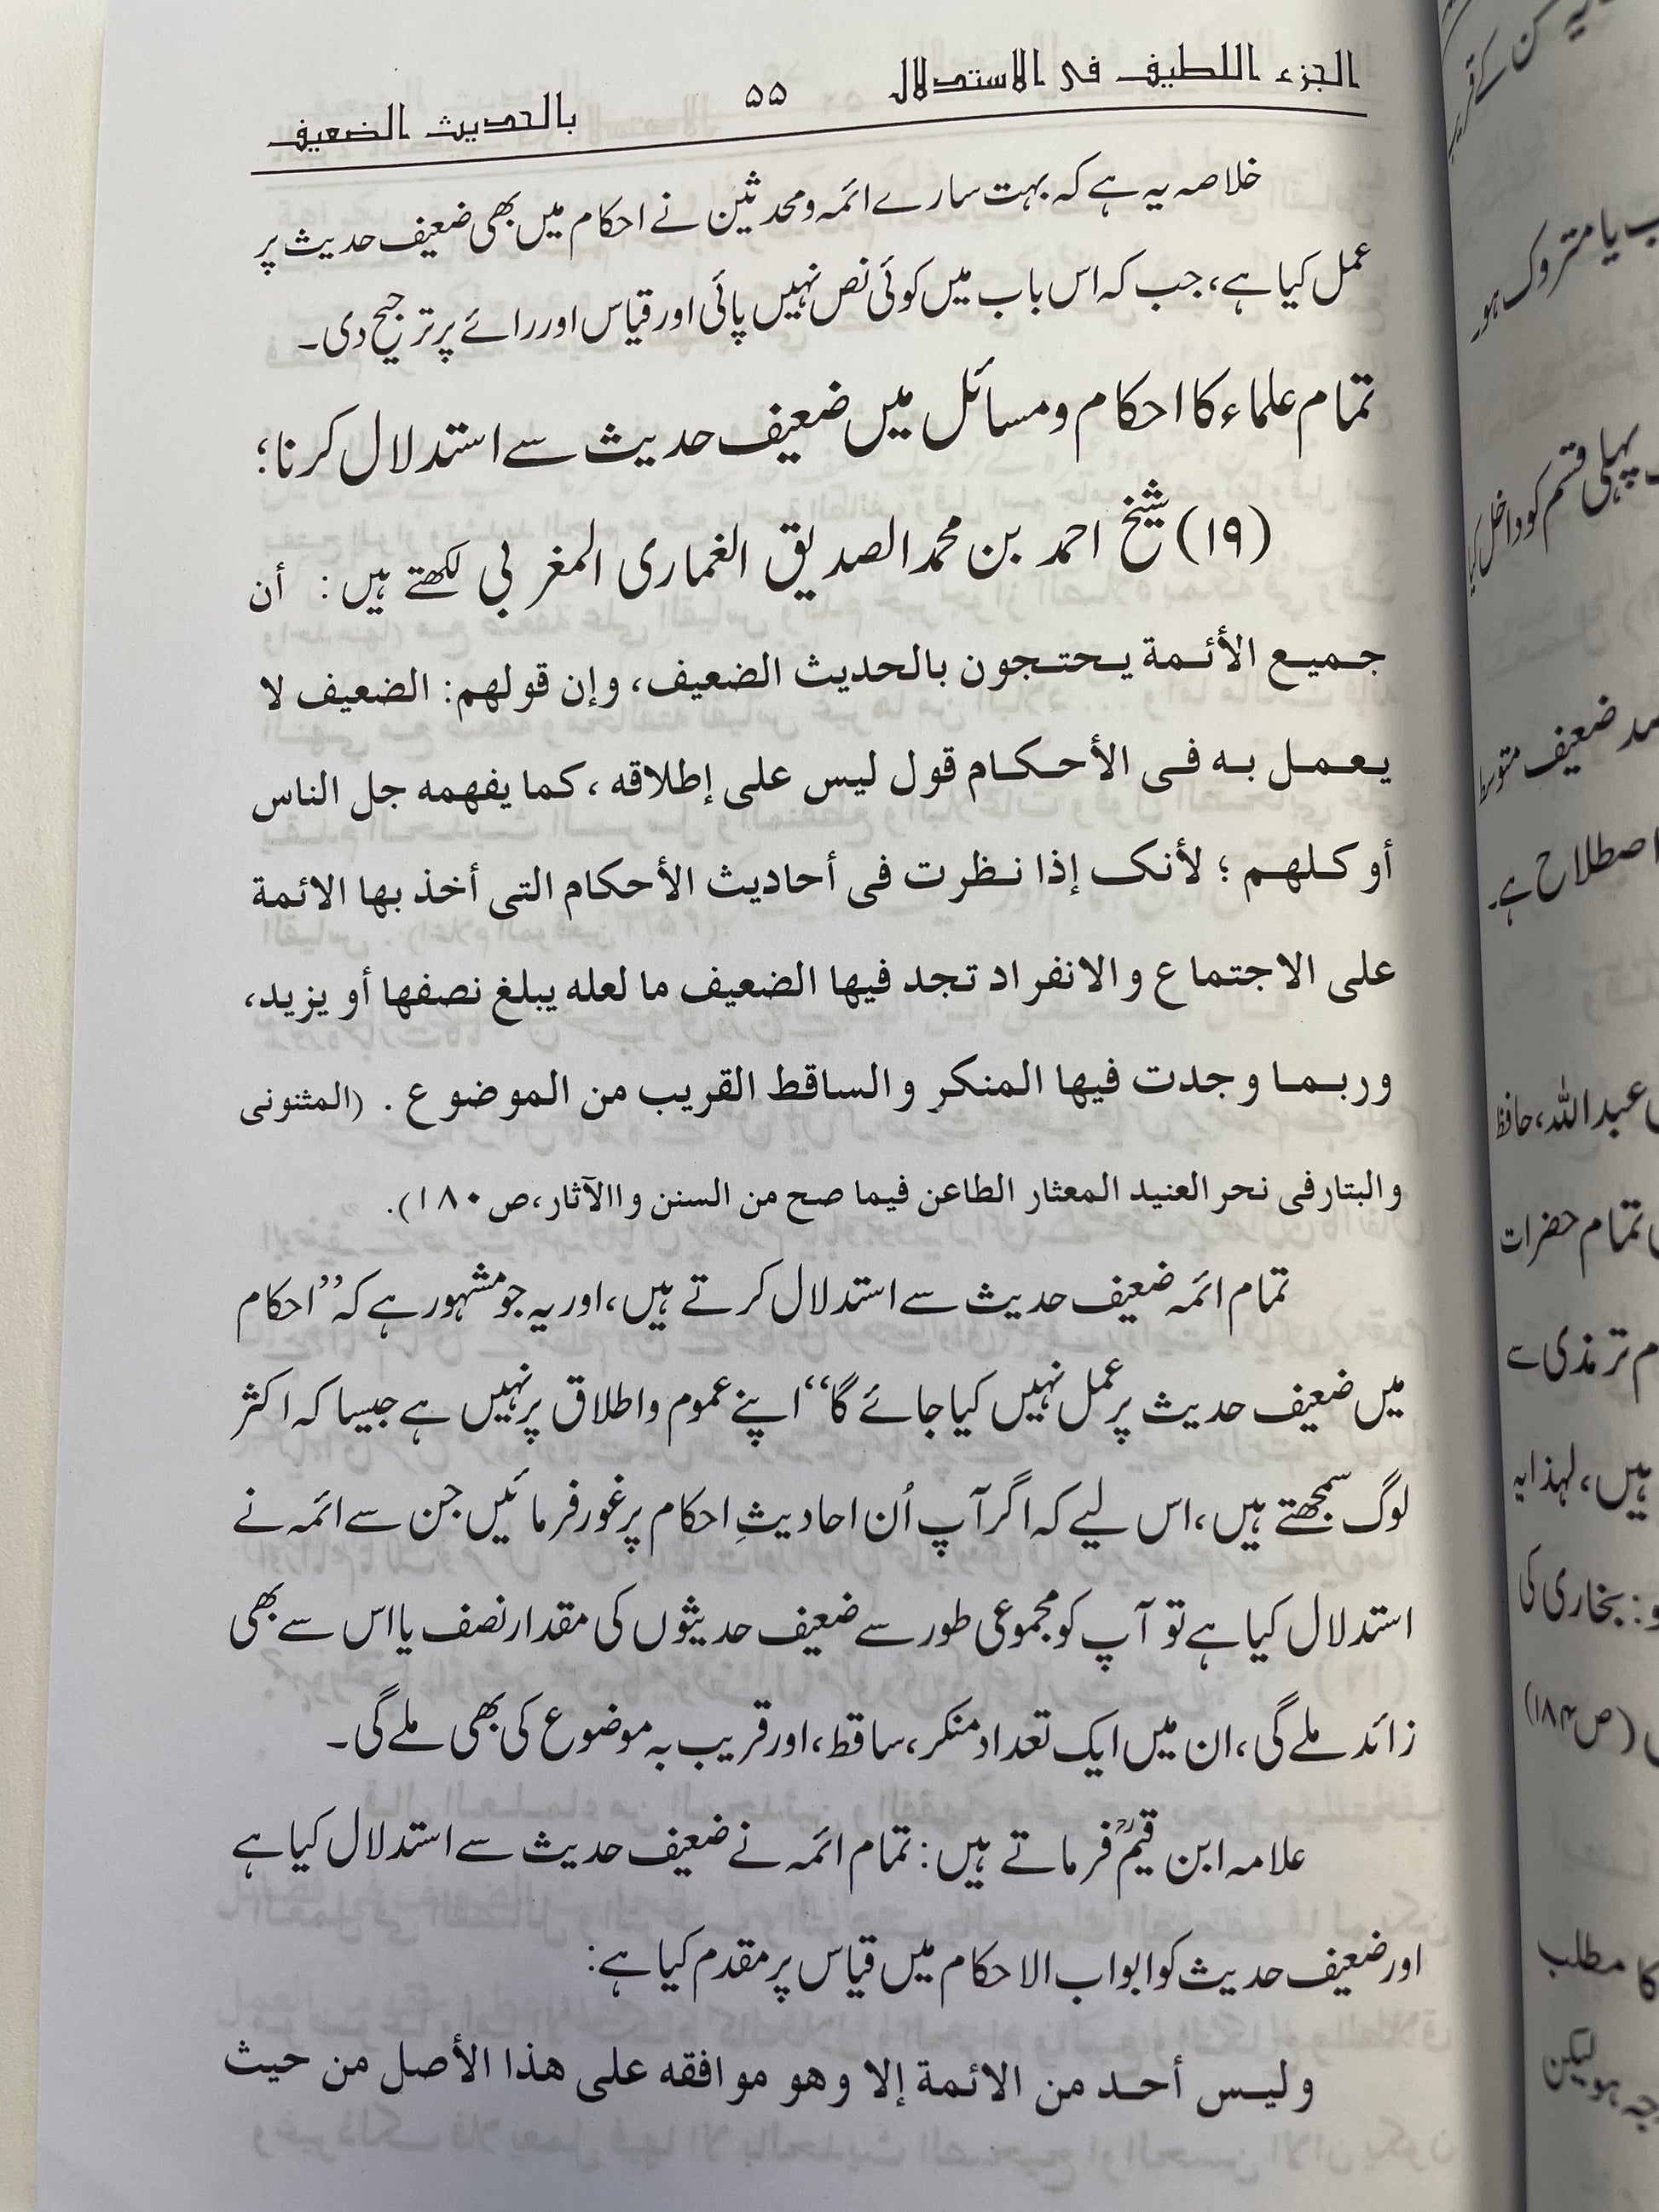 الجزء اللطيف فى الاستدلال ۵۵ بالحديث الضعيف
خلاصہ یہ ہے کہ بہت سارے ائمہ ومحدثین نے احکام میں بھی ضعیف حدیث پر
عمل کیا ہے، جب کہ اس باب میں کوئی نص نہیں پائی اور قیاس اور رائے پر ترجیح دی۔
تمام علماء کا احکام ومسائل میں ضعیف حدیث سے استدلال کرنا؛
(۱۹) شیخ احمد بن محمد الصدیق الغماری المغربی لکھتے ہیں: أن
جميع الأئمة يحتجون بالحديث الضعيف، وإن قولهم: الضعيف لا
يعمل به فى الأحكام قول ليس على إطلاقه ، كما يفهمه جل الناس
أو كلهم ؛ لأنک إذا نظرت فى أحاديث الأحكام التى أخذ بها الائمة
على الاجتماع والانفراد تجد فيها الضعيف ما لعله يبلغ نصفها أو يزيد،
وربما وجدت فيها المنكر والساقط القريب من الموضوع . (المثنونى
والبتار فى نحر العنيد المعثار الطاعن فيما صح من السنن واالآثار،ص ۱۸۰).
تمام ائمہ ضعیف حدیث سے استدلال کرتے ہیں، اور یہ جو مشہور ہے کہ ”احکام
میں ضعیف حدیث پر عمل نہیں کیا جائے گا“ اپنے عموم واطلاق پر نہیں ہے جیسا کہ اکثر
لوگ سمجھتے ہیں، اس لیے کہ اگر آپ اُن احادیثِ احکام پر غور فرمائیں جن سے ائمہ نے
استدلال کیا ہے تو آپ کو مجموعی طور سے ضعیف حدیثوں کی مقدار نصف یا اس سے بھی
زائد ملے گی، ان میں ایک تعداد منکر، ساقط، اور قریب بہ موضوع کی بھی ملے گی۔
علامہ ابن قیمؒ فرماتے ہیں: تمام ائمہ نے ضعیف حدیث سے استدلال کیا ہے
اور ضعیف حدیث کو ابواب الاحکام میں قیاس پر مقدم کیا ہے:
وليس أحد من الائمة إلا وهو موافقه على هذا الأصل من حيث
یا متروک ہو۔
پہلی قسم کو داخل کیا
ضعیف متوسط
اصطلاح ہے۔
عبد اللہ، حافظ
تمام حضرات
ترمذی سے
ہیں، لہذا یہ
: بخاری کی
(ص ۱۸۴)
کا مطلب
ہو لیکن